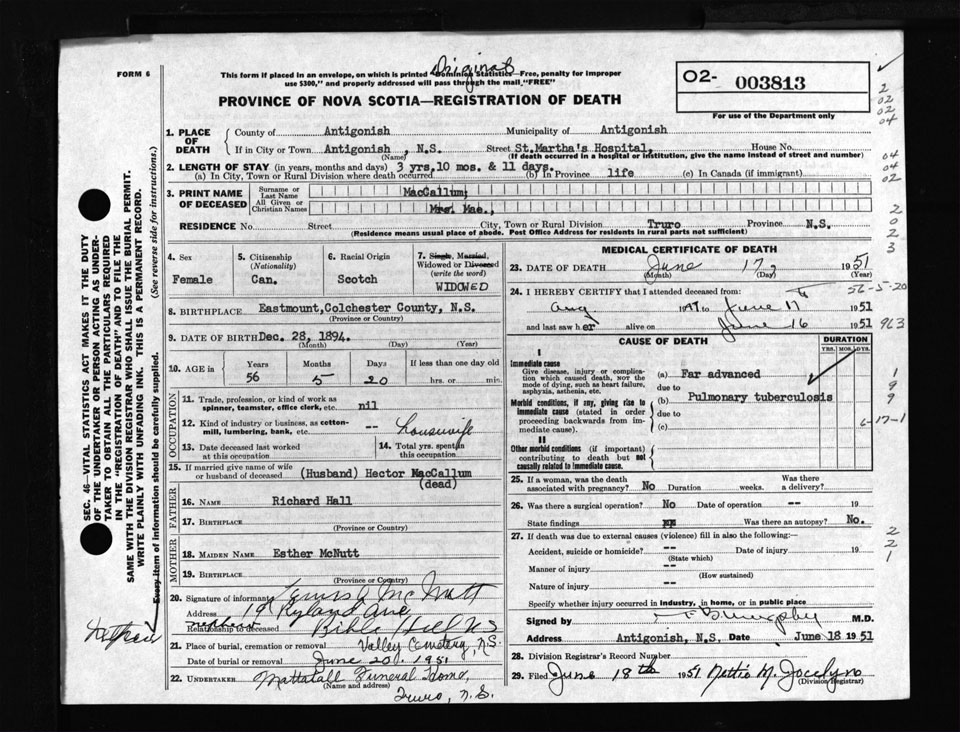 FORM 6
Original
This form if placed in an envelope, on which is printed "Dominion Statistics—Free, penalty for improper
use $300," and properly addressed will pass through the mail "FREE"
PROVINCE OF NOVA SCOTIA—REGISTRATION OF DEATH
02- 003813
For use of the Department only
2
02
02
04
04
04
02
2
0
2
3
SEC. 46—VITAL STATISTICS ACT MAKES IT THE DUTY
OF THE UNDERTAKER OR PERSON ACTING AS UNDER-
TAKER TO OBTAIN ALL THE PARTICULARS REQUIRED
IN THE "REGISTRATION OF DEATH" AND TO FILE THE
SAME WITH THE DIVISION REGISTRAR WHO SHALL ISSUE THE BURIAL PERMIT.
WRITE PLAINLY WITH UNFADING INK. THIS IS A PERMANENT RECORD.
Every item of information should be carefully supplied. (See reverse side for instructions.)
1. PLACE OF DEATH
County of Antigonish Municipality of Antigonish
If in City or Town Antigonish, N.S. Street St.Martha's Hospital, House No.
(Name) (If death occurred in a hospital or institution, give the name instead of street and number)
2. LENGTH OF STAY (in years, months and days) 3 yrs,10 mos. & 11 days.
(a) In City, Town or Rural Division where death occurred (b) In Province life (c) In Canada (if immigrant)
3. PRINT NAME OF DECEASED
Surname or Last Name MacCallum,
All Given or Christian Names Mrs. Mae.,
RESIDENCE No. Street City, Town or Rural Division Truro Province N.S.
(Residence means usual place of abode. Post Office Address for residents in rural parts not sufficient)
4. Sex
Female
5. Citizenship
(Nationality)
Can.
6. Racial Origin
Scotch
7. Single, Married,
Widowed or Divorced
(write the word)
WIDOWED
8. BIRTHPLACE Eastmount,Colchester County, N.S.
(Province or Country)
9. DATE OF BIRTH Dec. 28, 1894.
(Month) (Day) (Year)
10. AGE IN
Years Months Days If less than one day old
56 5 20 hrs. or min.
OCCUPATION
11. Trade, profession, or kind of work as
spinner, teamster, office clerk, etc. nil
12. Kind of industry or business, as cotton-
mill, lumbering, bank, etc. -- housewife
13. Date deceased last worked
at this occupation
14. Total yrs. spent in
this occupation
15. If married give name of wife
or husband of deceased (Husband) Hector MacCallum
(dead)
FATHER
16. NAME Richard Hall
17. BIRTHPLACE
(Province or Country)
MOTHER
18. MAIDEN NAME Esther McNutt
19. BIRTHPLACE
(Province or Country)
20. Signature of informant McNutt
Address 19 Ryland Ave,
Relationship to deceased Bible Hill NS
21. Place of burial, cremation or removal Valley Cemetery, N.S.
Date of burial or removal June 20, 1951
22. UNDERTAKER Mattatall Funeral Home,
(Name and address)
Truro, N.S.
MEDICAL CERTIFICATE OF DEATH
23. DATE OF DEATH June 17, 1951
(Month) (Day) (Year)
24. I HEREBY CERTIFY that I attended deceased from:
56-5-20
Aug 1947 to June 17 1951
and last saw her alive on June 16 1951
963
CAUSE OF DEATH
DURATION
YRS. MOS. DYS.
I
Immediate cause
Give disease, injury or complica-
tion which caused death, NOT the
mode of dying, such as heart failure,
asphyxia, asthenia, etc.
(a) Far advanced
due to
Morbid conditions, if any, giving rise to
immediate cause (stated in order
proceeding backwards from im-
mediate cause).
(b) Pulmonary tuberculosis
due to
(c)
1
9
9
6-17-1
II
Other morbid conditions (if important)
contributing to death but not
causally related to immediate cause.
25. If a woman, was the death
associated with pregnancy? No Duration weeks. Was there
a delivery?
26. Was there a surgical operation? No Date of operation -- 19
State findings Was there an autopsy? No.
27. If death was due to external causes (violence) fill in also the following:
Accident, suicide or homicide? -- Date of injury 19
(State which)
Manner of injury --
(How sustained)
Nature of injury --
Specify whether injury occurred in industry, in home, or in public place
2
2
1
Signed by Murphy M.D.
Address Antigonish, N.S. Date June 18 1951
28. Division Registrar's Record Number
29. Filed June 18th 1951 Nettie M. Jocelyn
(Division Registrar)